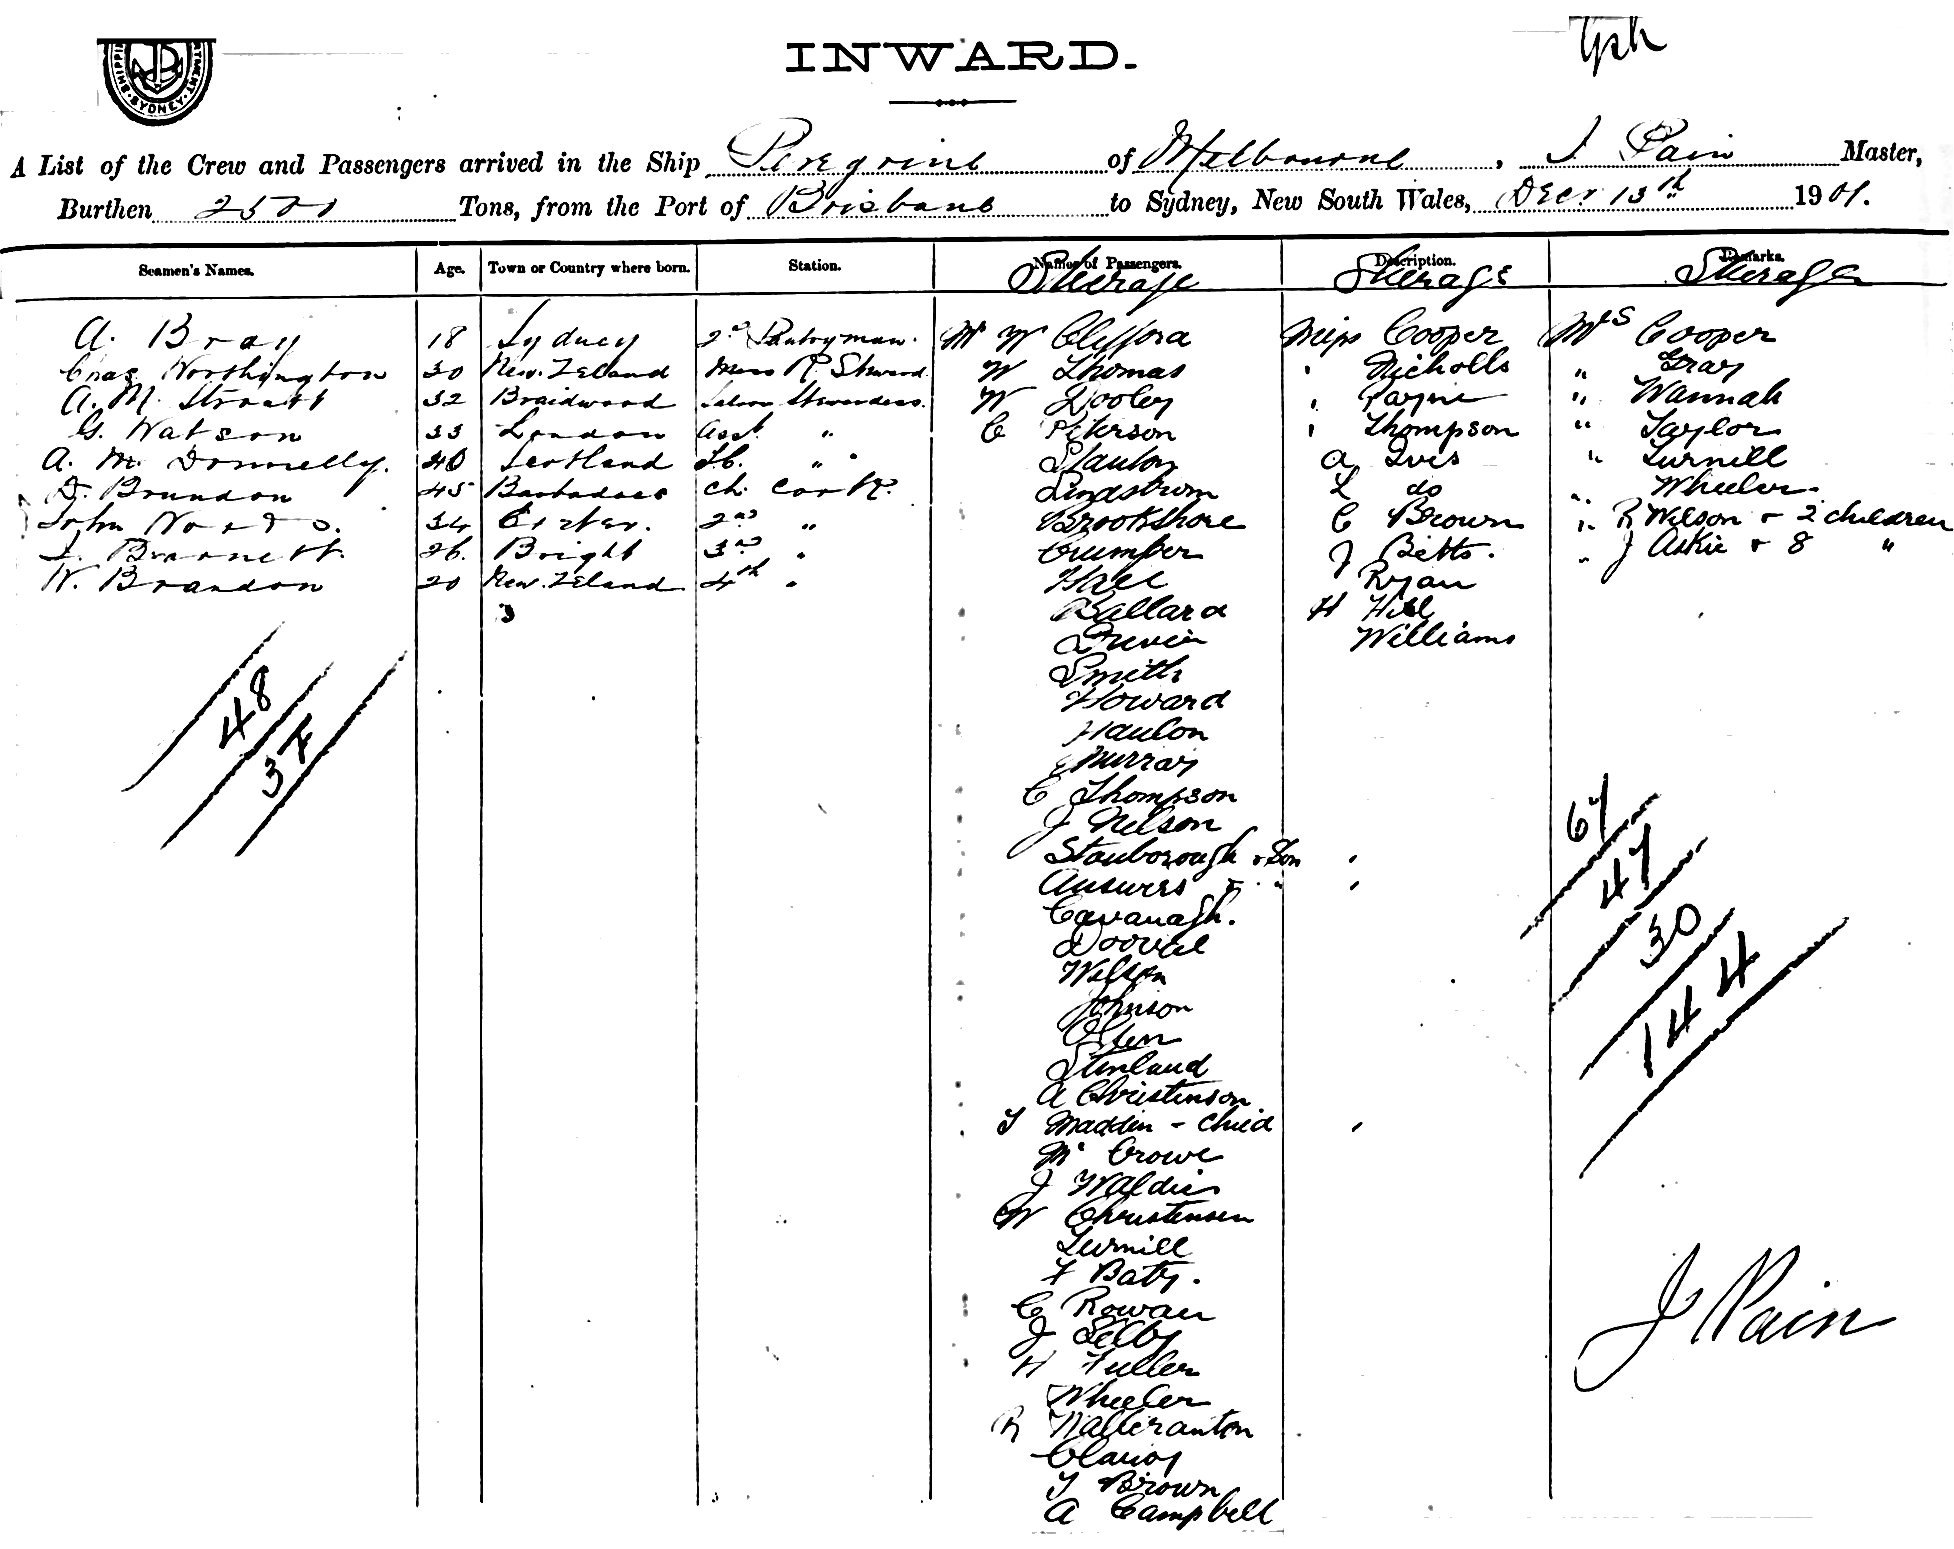 INWARD.
SYDNEY
A List of the Crew and Passengers arrived in the Ship Peregrine of Melbourne, J Pain Master,
Burthen 2500 Tons, from the Port of Brisbane to Sydney, New South Wales, Decr 13th 1901.
Seamen's Names. Age. Town or Country where born. Station. Names of Passengers. Description. Remarks.
Steerage Steerage Steerage
A. Bray 18 Sydney 2nd Pantryman. Mr W Clifford Miss Cooper Mrs Cooper
Chas Worthington 30 New. Zeland Mess R. Steward. W Thomas " Nicholls " Gray
A. M. Stewart 32 Braidwood Saloon Stewardess. W Dooley " Payne " Wannah
G. Watson 33 London Asst. " C Peterson " Thompson " Taylor
A. M. Donnelly. 40 Scotland " Stanton A Ives " Turnill
D. Brandon 45 Barbadoes Ch. Cook. Lindstrom L do " Wheeler
John Woods. 34 Exeter. 2nd " Brookshore C Brown " R Wilson + 2 children
Barnett. 26. Bright 3rd " Crumper J Betts. " J Askie + 8 "
W. Brandon 20 New. Zeland 4th " Hall Ryan
3 Ballard H Hill
Devin Williams
Smith
Howard
Hanlon
Murray
C Thompson
J Nelson
Stanborough + Son
Answers + "
Cavanagh.
Dooval
Wilson
Johnson
Olsen
Stenland
A Christenson
T Madden - child
Mc Crowe
J Waldies
W Christensen
Turnill
F Baty.
C Rowan
J Selby
H Fuller
Wheeler
R Walleranton
Clancy
T Brown
A Campbell
48
37
67
47
30
144
J Pain